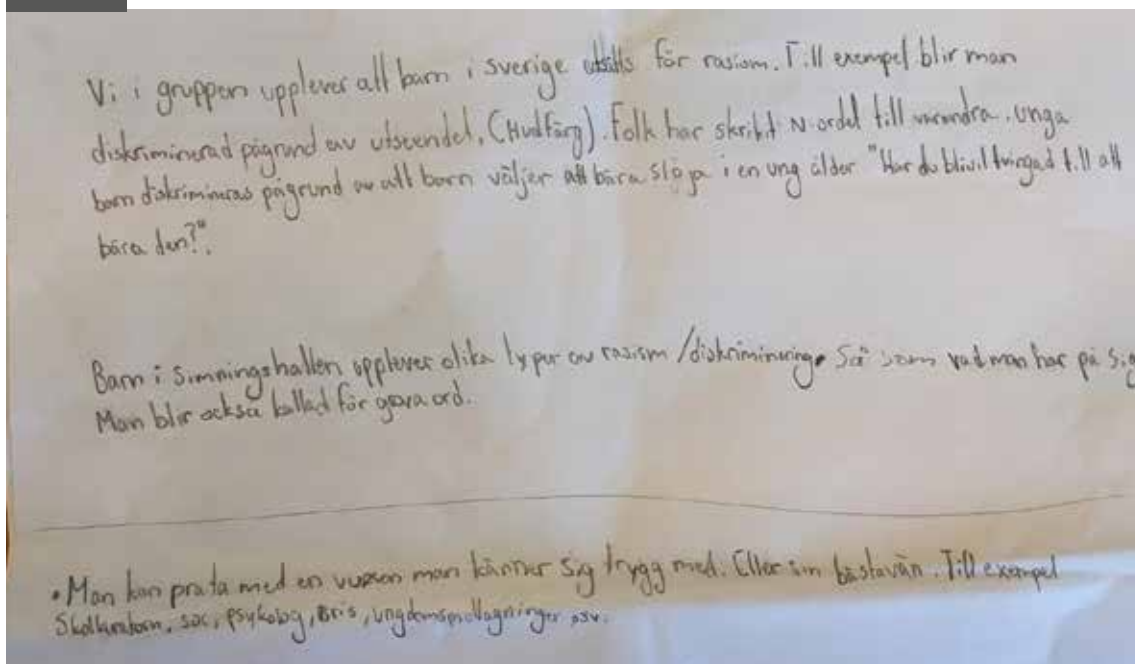 Vi i gruppen upplever att barn i sverige utsätts för rasism. Till exempel blir man
diskriminerad pågrund av utseendet. (Hudfärg). Folk har skribit N-ordet till varandra. unga
barn diskrimineras pågrund av att barn väljer att bära slöja i en ung ålder "Har du blivit tvingad till att
bära den?".
Barn i simningshallen upplever olika typer av rasism/diskriminering. Så som vad man har på sig
Man blir också kallad för grova ord.
• Man kan prata med en vuxen man känner sig trygg med. Eller sin bästavän. Till exempel
Skolkuratorn, soc, psykolog, Bris, ungdomsmottagninger osv.